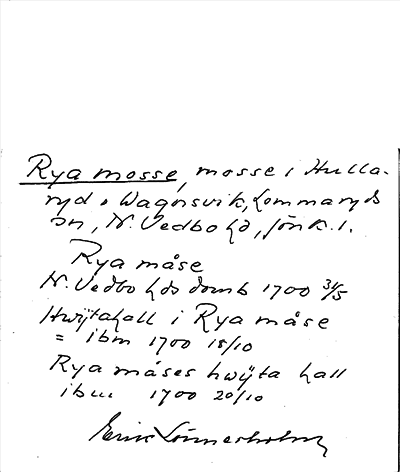 Rya mosse, mosse i Hulla-
ryd o Wagnsvik, Lommaryds
sn, N. Vedbo hd, Jön k. l.
Rya måse
N. Vedbo hds domb 1700 31/5
Hwijta hall i Rya måse
= ibm 1700 18/10
Rya måses hwijta hall
ibm 1700 20/10
Eric Linnerholm